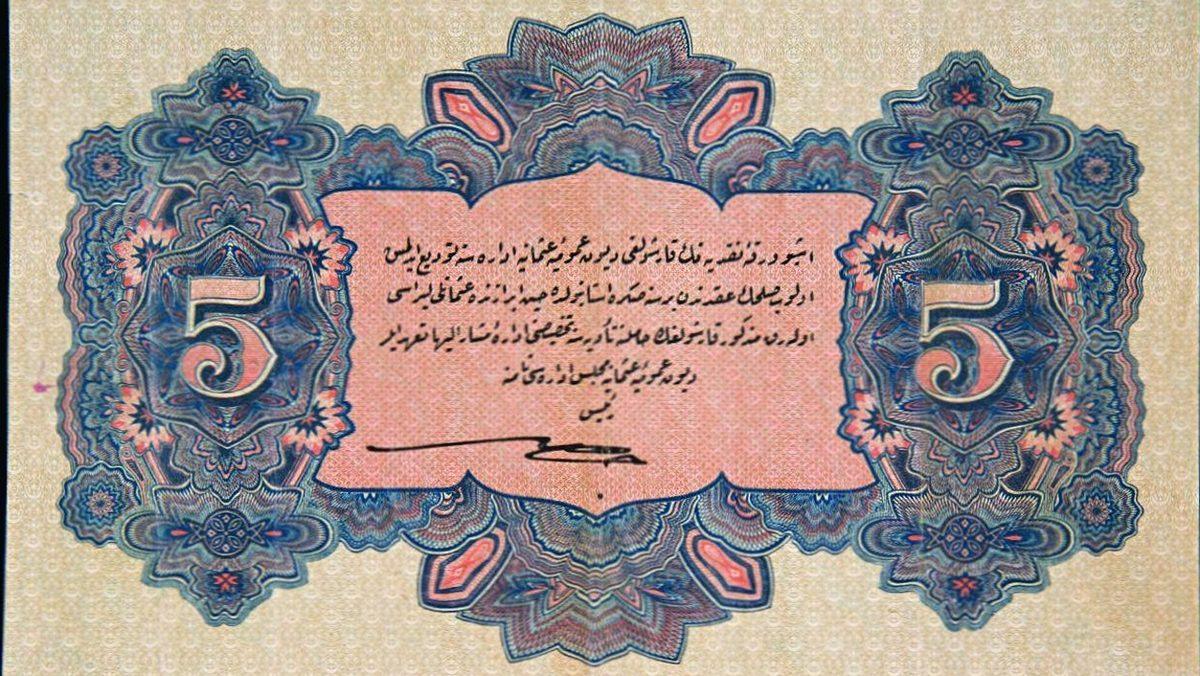 اشبو ورقهٔ نقدیه نك قارشولغی دیون عمومیهٔ عثمانیه اداره سنه تودیع ایدلمش
اولوب صلحك عقدندن بر سنه صكره استانبولده حین ابرازنده عثمانلی لیراسی
اولەرق مذكور قارشولغك حاملنه تأدیه سنه تخصیصی ادارهٔ مشار الیها تعهد ایلر
دیون عمومیهٔ عثمانیه مجلس اداره سی نامنه
رئیس
5
5